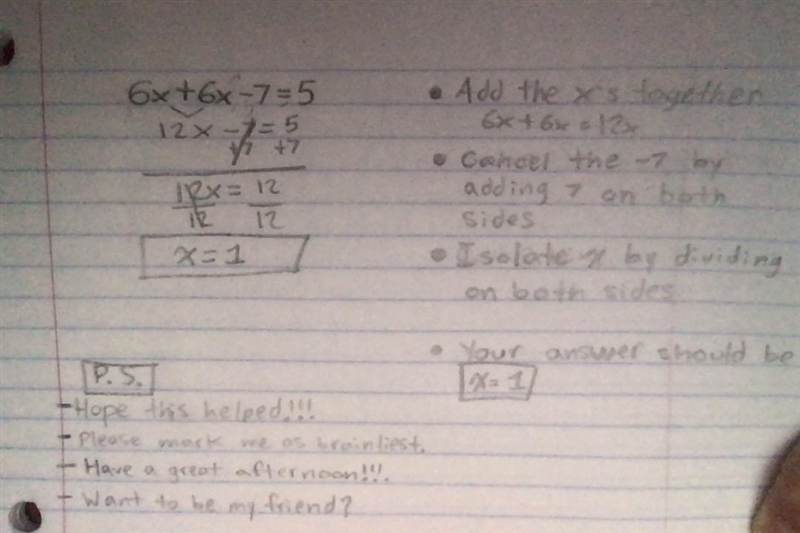 6x+6x-7=5
12x-7=5
+7 +7
12x = 12
12 12
x=1
• Add the x's together
6x+6x=12x
• Cancel the -7 by
adding 7 on both
sides
• Isolate x by dividing
on both sides
• Your answer should be
x=1
P.S.
- Hope this helped!!!
- Please mark me as brainliest.
- Have a great afternoon!!!.
- Want to be my friend?